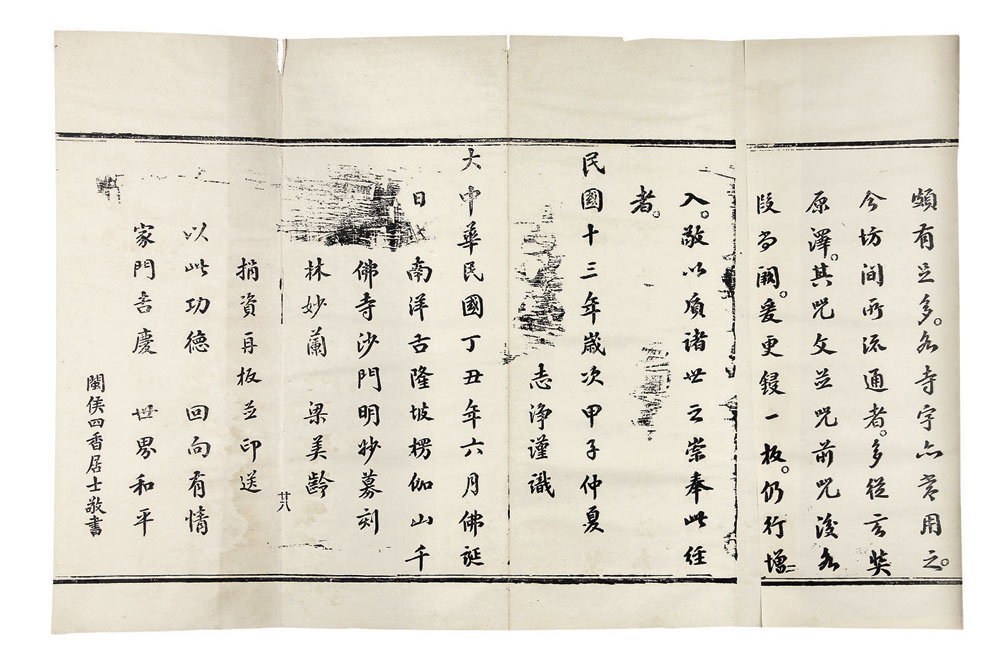 頗有足多。各寺宇亦常用之。
今坊間所流通者。多從玄奘
原譯。其咒文並咒前咒後各
段尚闕。爰更鋟一板。仍行增
入。敬以質諸世之崇奉此經
者。
民國十三年歲次甲子仲夏
志淨謹識
大中華民國丁丑年六月佛誕
日 南洋吉隆坡楞伽山千
佛寺沙門明妙募刻
林妙蘭 梁美齡
廿八
捐資再板並印送
以此功德 回向有情
家門吉慶 世界和平
閩侯四香居士敬書